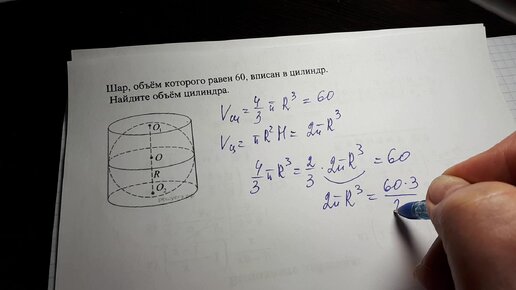 Шар, объём которого равен 60, вписан в цилиндр.
Найдите объём цилиндра.
Vш = 4/3 π R³ = 60
Vц = π R² H = 2π R³
4/3 π R³ = 2/3 · 2π R³ = 60
2π R³ = 60·3/2
O₁
O
R
O₂